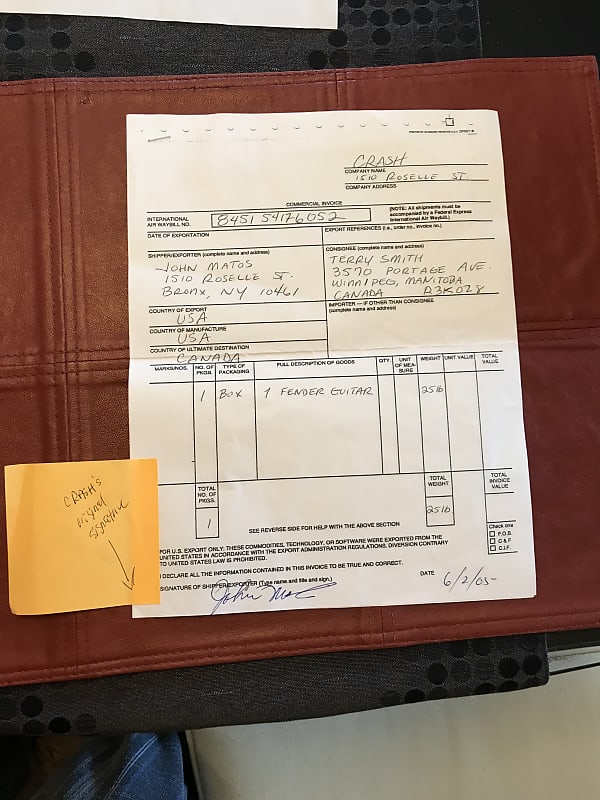 CRASH
COMPANY NAME
1510 ROSELLE ST.
COMPANY ADDRESS
COMMERCIAL INVOICE
INTERNATIONAL AIR WAYBILL NO.
8451 5417 6052
(NOTE: All shipments must be accompanied by a Federal Express International Air Waybill.)
DATE OF EXPORTATION
EXPORT REFERENCES (i.e., order no., invoice no.)
SHIPPER/EXPORTER (complete name and address)
JOHN MATOS
1510 ROSELLE ST.
BRONX, NY 10461
CONSIGNEE (complete name and address)
TERRY SMITH
3570 PORTAGE AVE.
WINNIPEG, MANITOBA
CANADA R3K0Z8
COUNTRY OF EXPORT
USA
IMPORTER — IF OTHER THAN CONSIGNEE
(complete name and address)
COUNTRY OF MANUFACTURE
USA
COUNTRY OF ULTIMATE DESTINATION
CANADA
MARKS/NOS. NO. OF PKGS. TYPE OF PACKAGING FULL DESCRIPTION OF GOODS QTY. UNIT OF MEASURE WEIGHT UNIT VALUE TOTAL VALUE
1 BOX 1 FENDER GUITAR 25 lb
TOTAL NO. OF PKGS. TOTAL WEIGHT TOTAL INVOICE VALUE
1 25 lb
SEE REVERSE SIDE FOR HELP WITH THE ABOVE SECTION
Check one
F.O.B.
C & F
C.I.F.
FOR U.S. EXPORT ONLY: THESE COMMODITIES, TECHNOLOGY, OR SOFTWARE WERE EXPORTED FROM THE
UNITED STATES IN ACCORDANCE WITH THE EXPORT ADMINISTRATION REGULATIONS, DIVERSION CONTRARY
TO UNITED STATES LAW IS PROHIBITED.
I DECLARE ALL THE INFORMATION CONTAINED IN THIS INVOICE TO BE TRUE AND CORRECT.
SIGNATURE OF SHIPPER/EXPORTER (Type name and title and sign.)
John Mat
DATE 6/2/05
CRASH'S
ORIGINAL
SIGNATURE